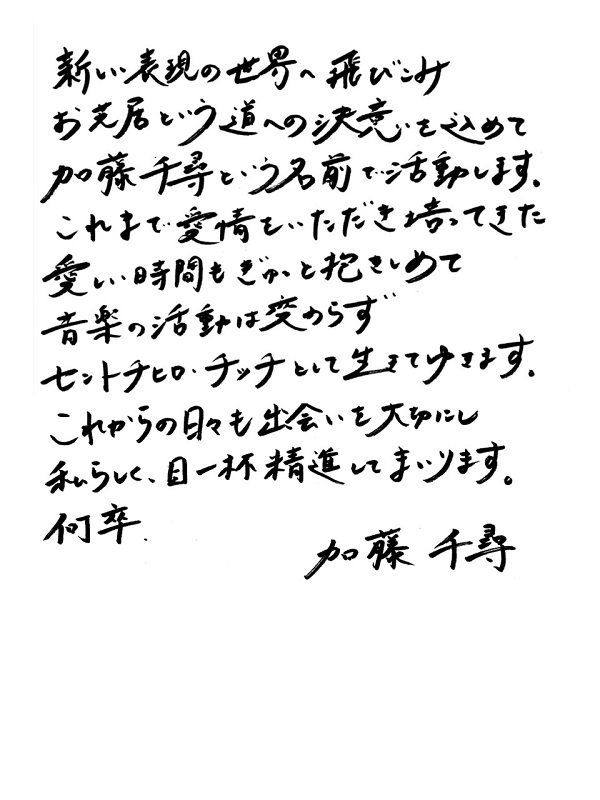 新しい表現の世界へ飛びこみ
お芝居という道への決意を込めて
加藤千尋という名前で活動します。
これまで愛情をいただき培ってきた
愛しい時間もぎゅっと抱きしめて
音楽の活動は変わらず
セントチヒロ・チッチとして生きてゆきます。
これからの日々も出会いを大切にし
私らしく、目一杯精進してまいります。
何卒、
加藤 千尋